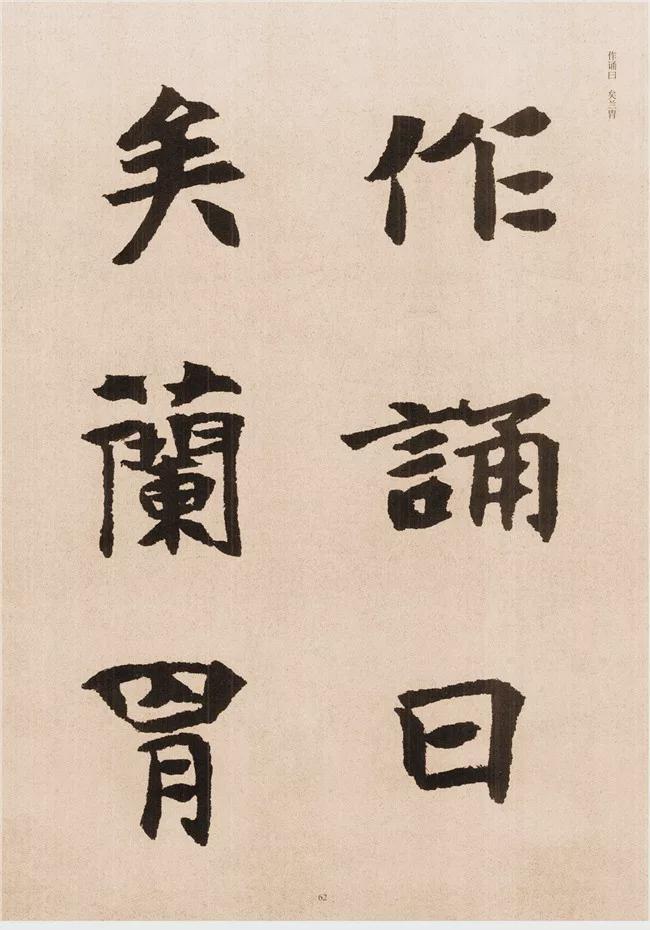 作诵曰 矣兰胃
作誦曰
矣蘭胃
62